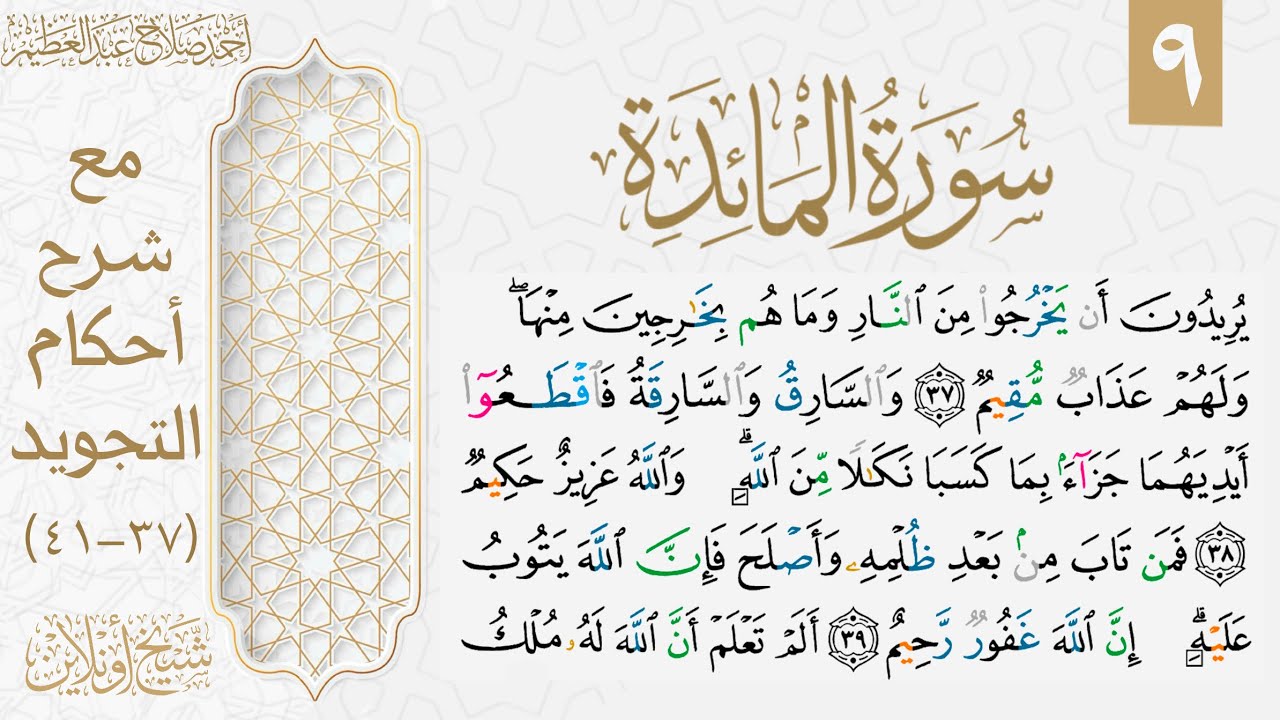 ٩
أحمد صلاح عبد العظيم
سُورَةُ الْمَائِدَةِ
مع
شرح
أحكام
التجويد
(٣٧-٤١)
يُرِيدُونَ أَن يَخْرُجُوا۟ مِنَ ٱلنَّارِ وَمَا هُم بِخَٰرِجِينَ مِنْهَا ۖ
وَلَهُمْ عَذَابٌ مُّقِيمٌ ٣٧ وَٱلسَّارِقُ وَٱلسَّارِقَةُ فَٱقْطَعُوٓا۟
أَيْدِيَهُمَا جَزَآءَۢ بِمَا كَسَبَا نَكَٰلًا مِّنَ ٱللَّهِ ۗ وَٱللَّهُ عَزِيزٌ حَكِيمٌ
٣٨ فَمَن تَابَ مِنۢ بَعْدِ ظُلْمِهِۦ وَأَصْلَحَ فَإِنَّ ٱللَّهَ يَتُوبُ
عَلَيْهِ ۗ إِنَّ ٱللَّهَ غَفُورٌ رَّحِيمٌ ٣٩ أَلَمْ تَعْلَمْ أَنَّ ٱللَّهَ لَهُۥ مُلْكُ
شيخ أونلاين